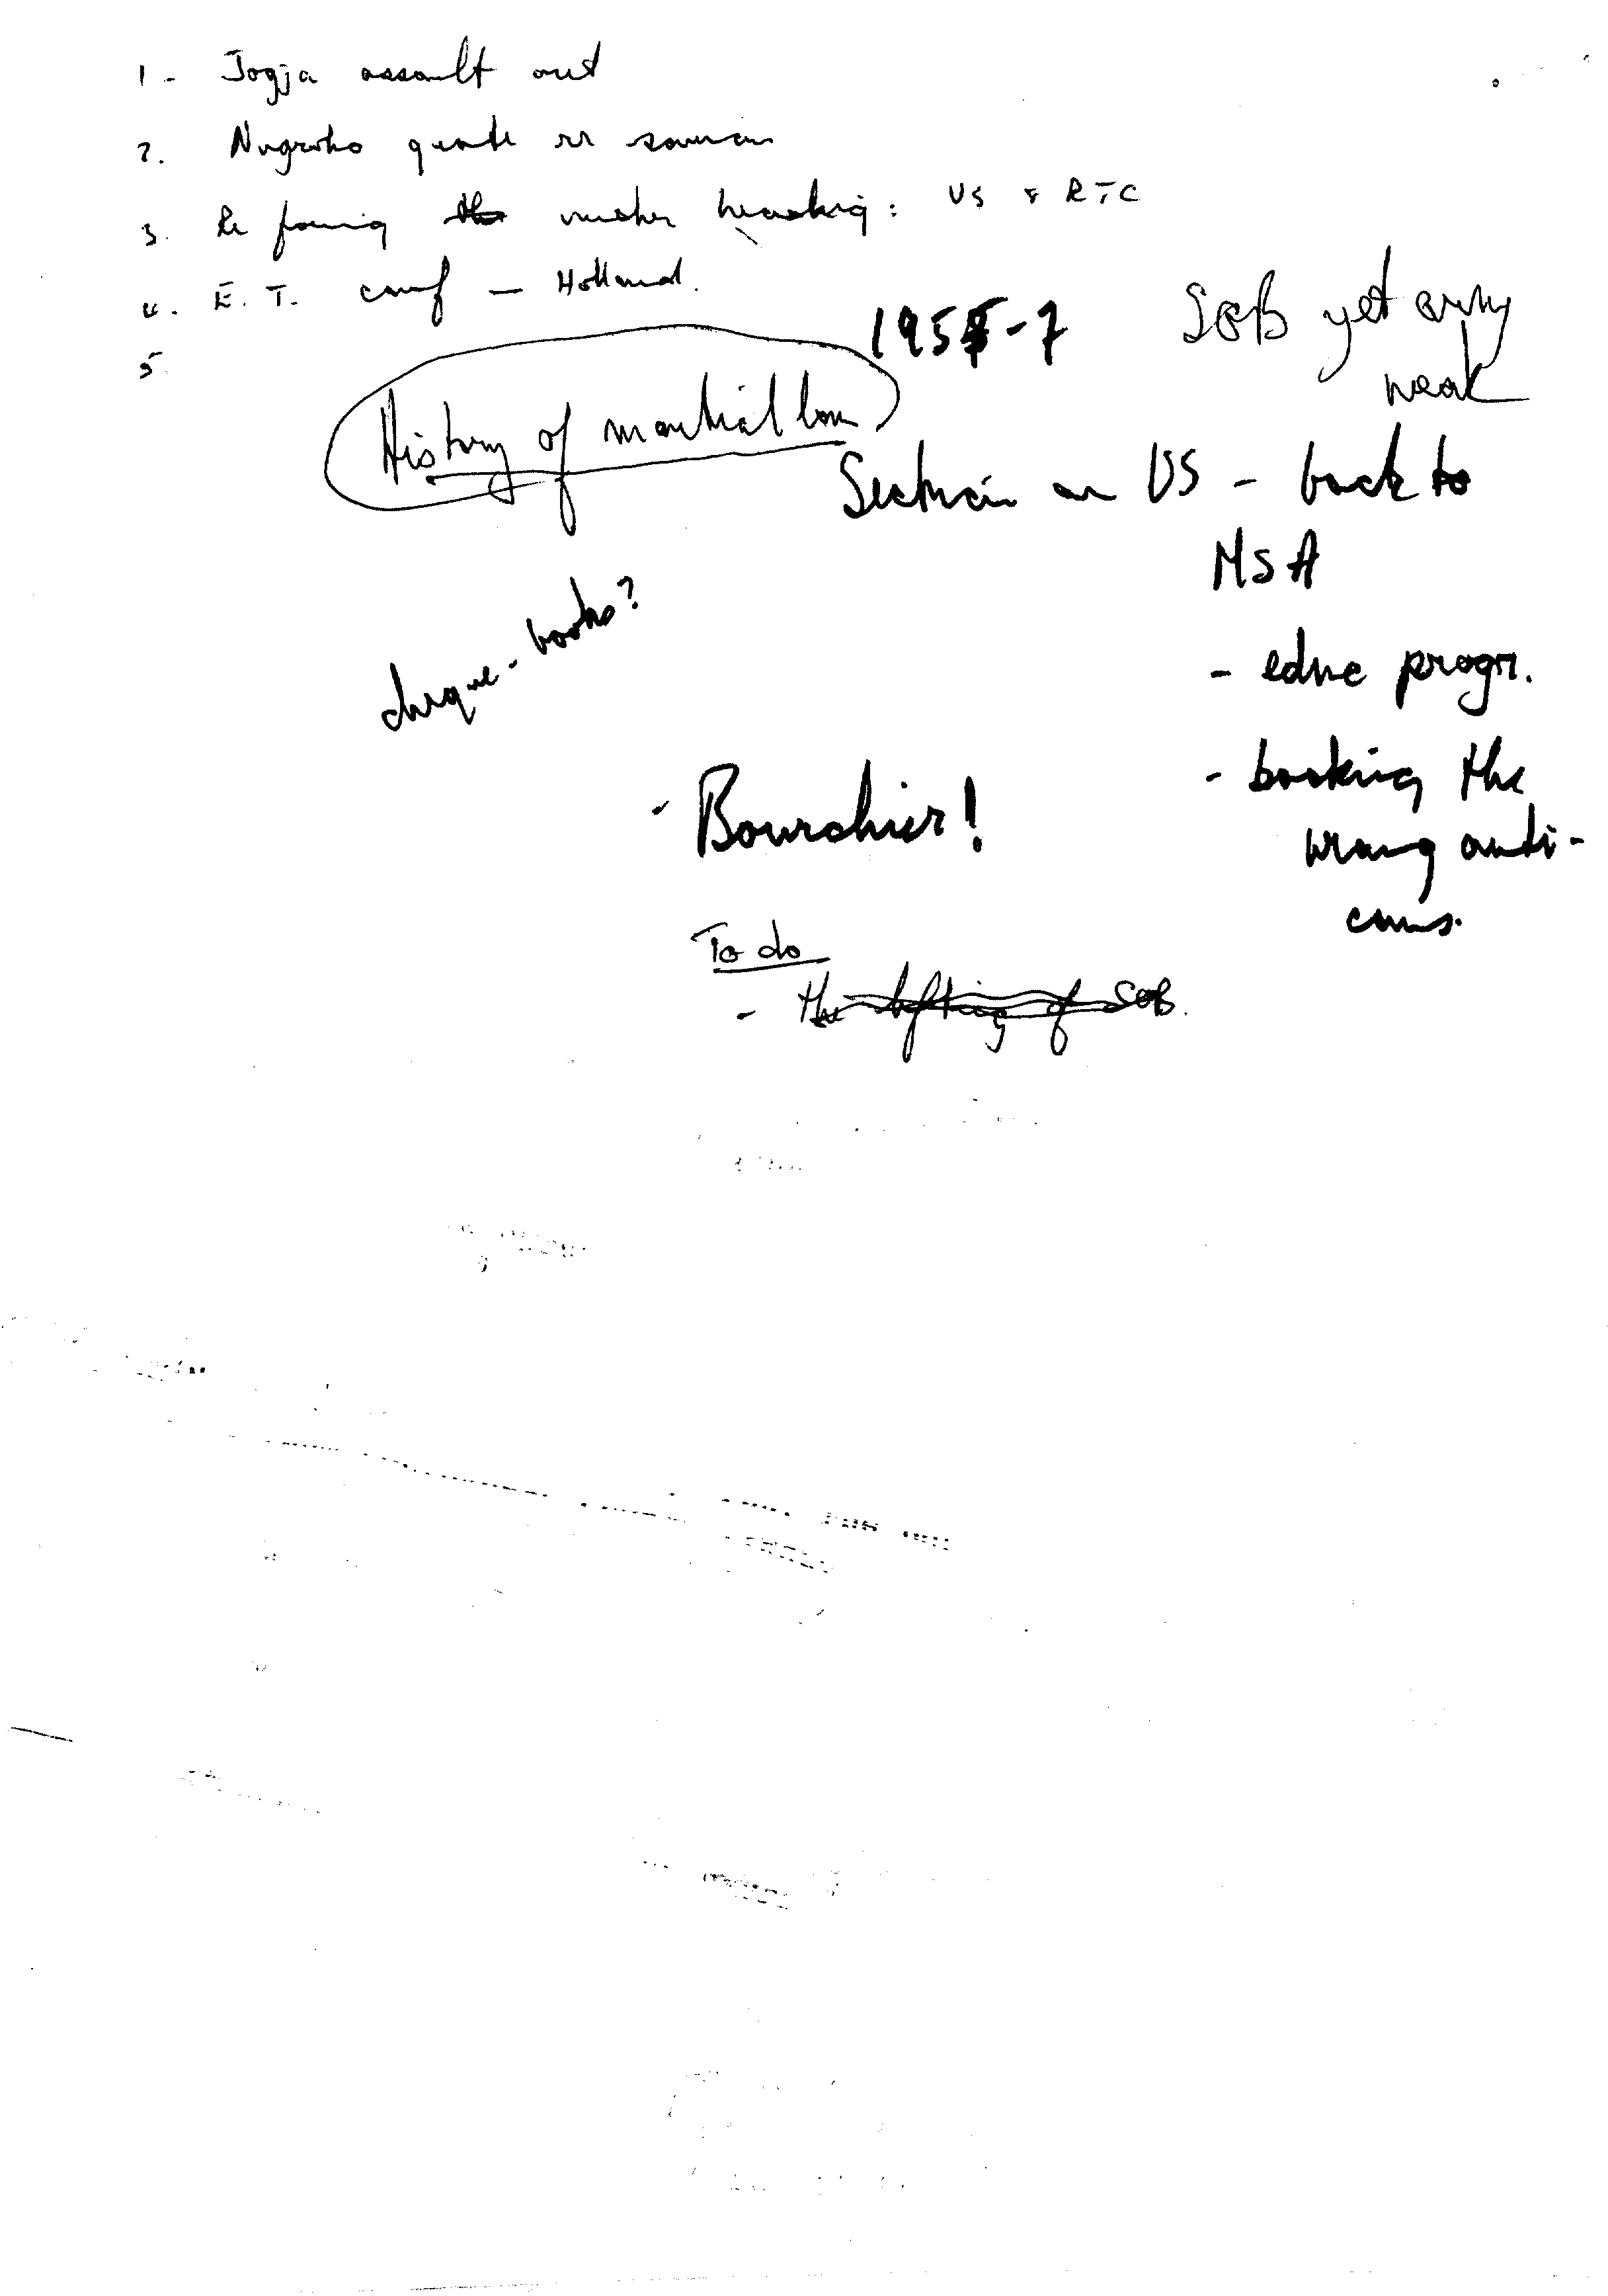 1 - Jogja assault out
2. Nugroho quote re
3. Re heading: US & RTC
4. E.T. conf — Holland.
5.
1955-7
SOB yet army
weak
History of martial law
Section on US - back to
MSA
cheque-books?
- educ progr.
- backing the
wrong anti-
coms.
- Bourchier!
To do
- the lifting of SOB.